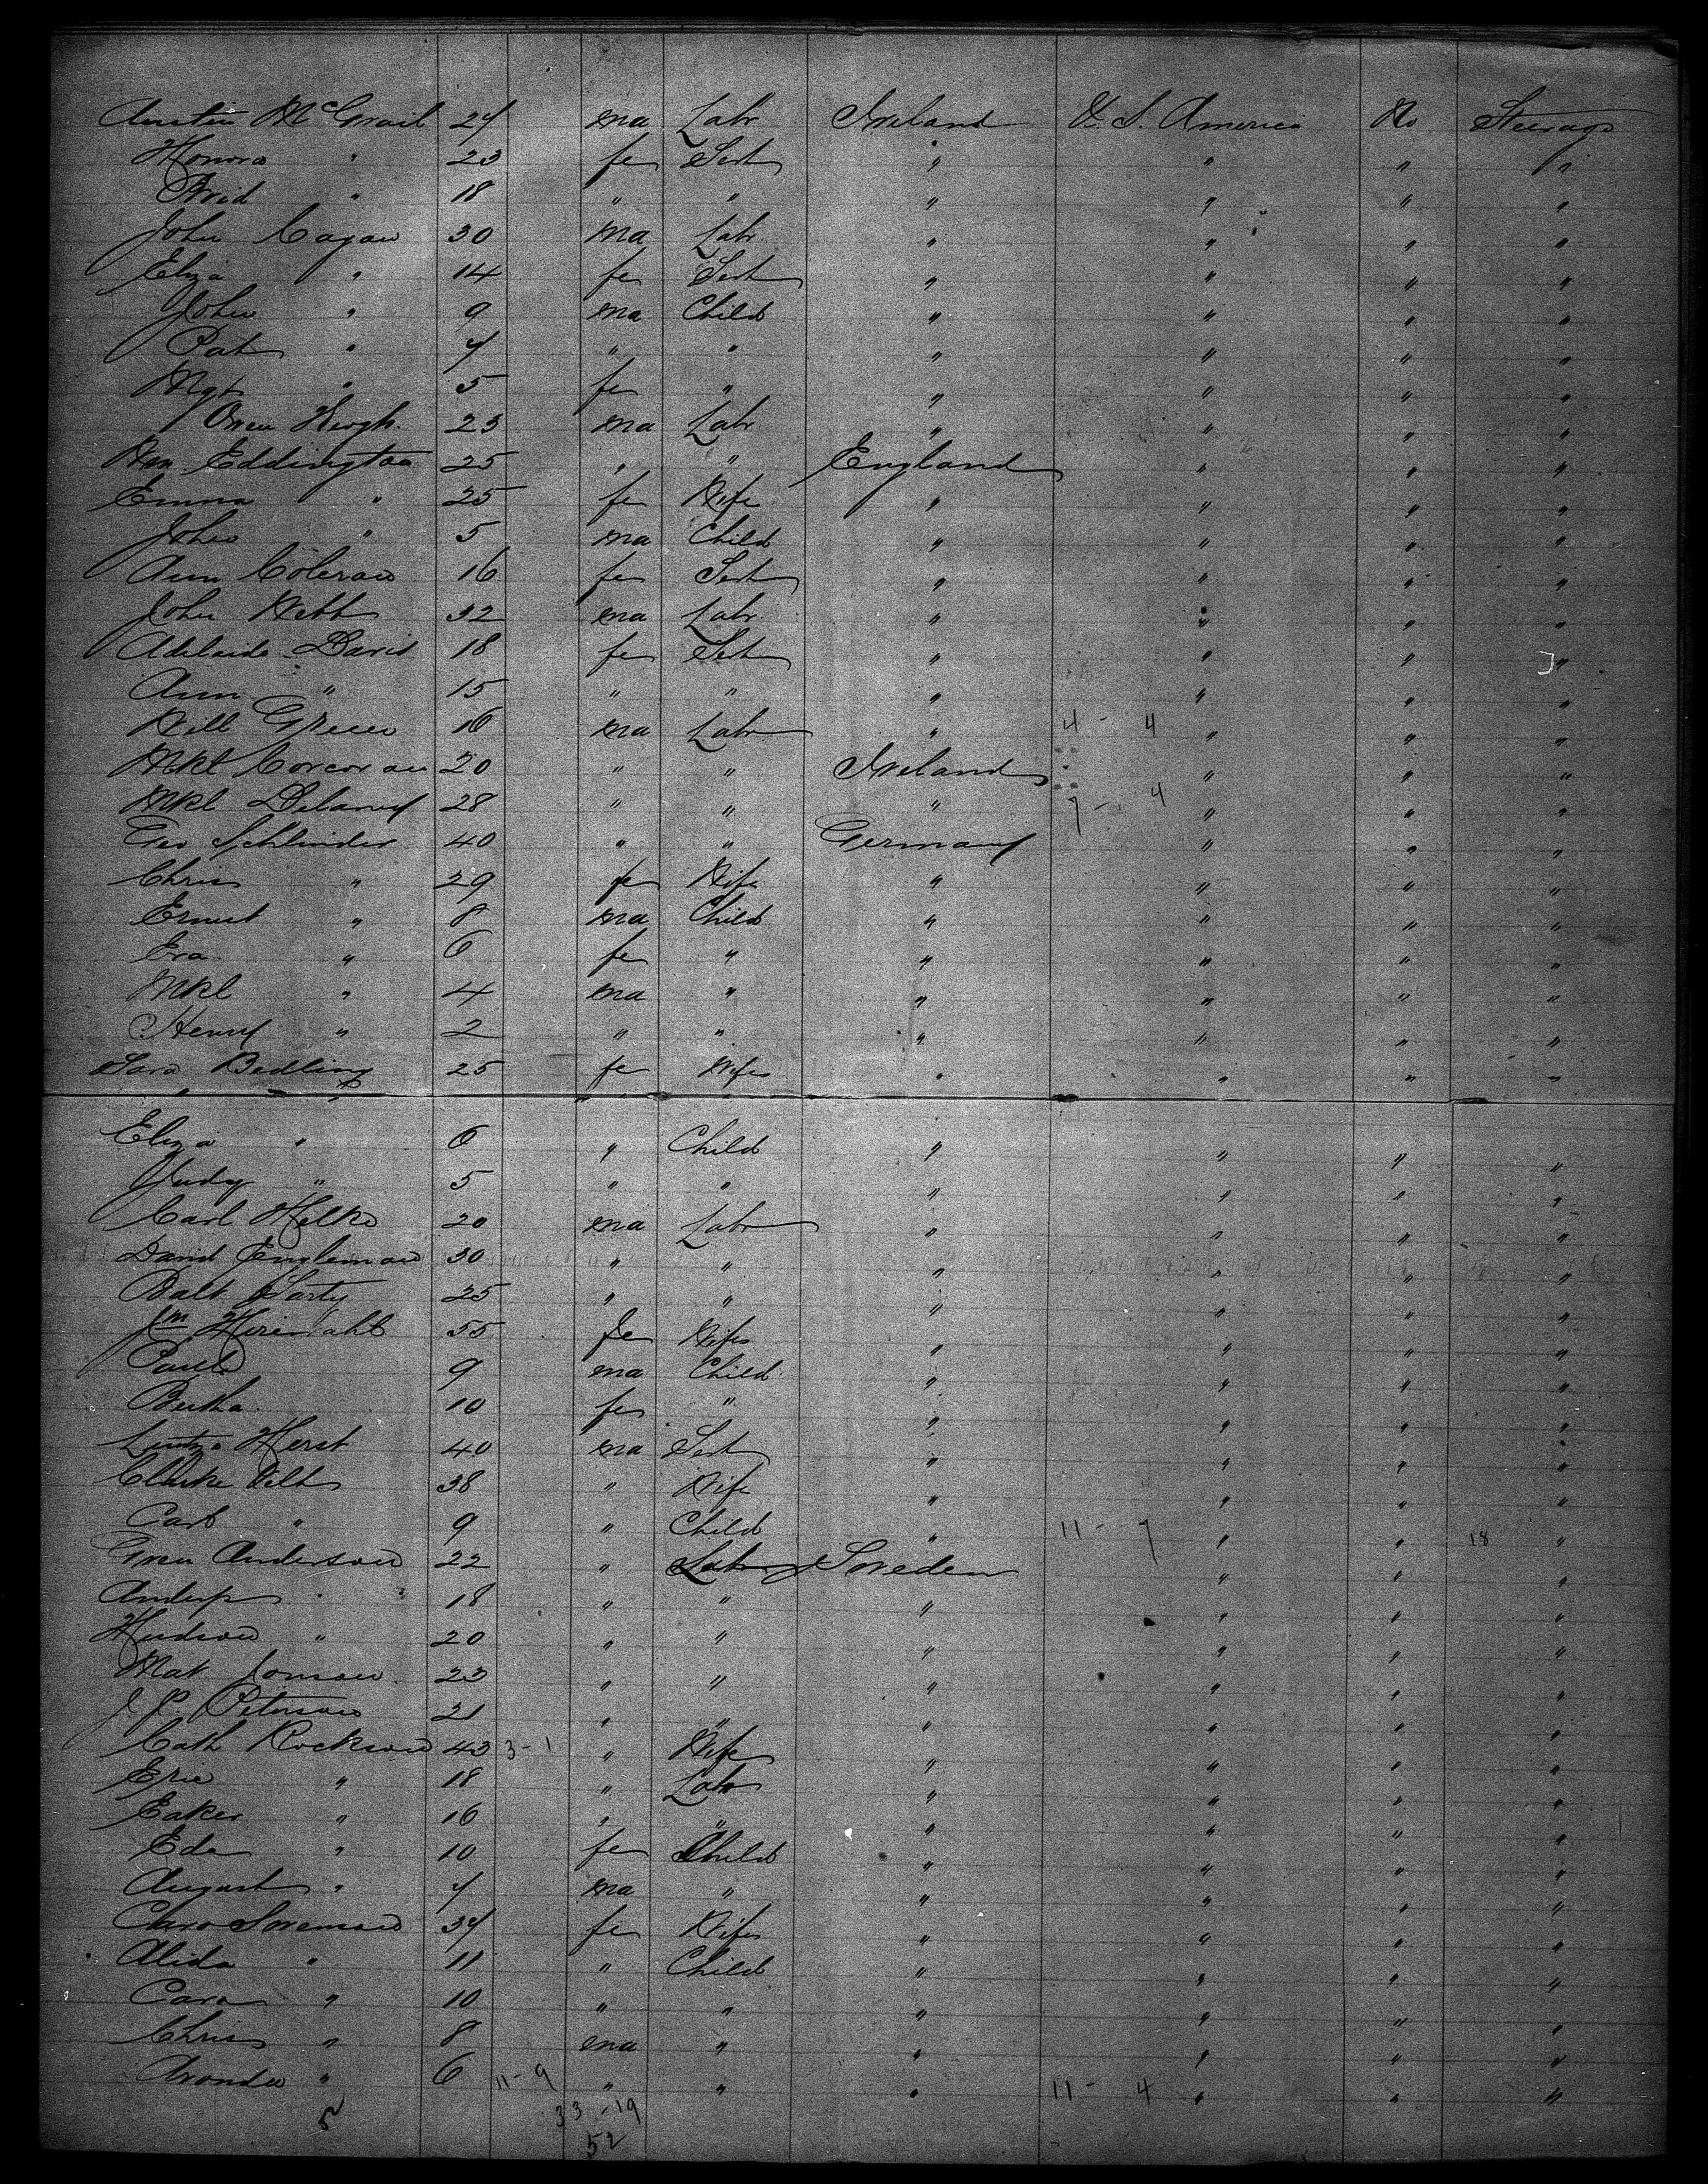 Austin McGrail 24 ma Labr Ireland U. S. America No Steerage
Honora " 23 fe Sert " " " "
Brid " 18 " " " " " "
John Cagan 30 ma Labr " " " "
Eliza " 14 fe Sert " " " "
John " 9 ma Child " " " "
Pat " 7 " " " " " "
Mgt " 5 fe " " " " "
Owen Keogh. 23 ma Labr " " " "
Wm Eddington 25 " " England " " "
Emma " 25 fe Wife " " " "
John " 5 ma Child " " " "
Ann Coleran 16 fe Sert " " " "
John Webb 32 ma Labr " " " "
Adelaide Davis 18 fe Sert " " " "
Ann " 15 " " " " " "
Will Green 16 ma Labr " 4 - 4 " " "
Mkl Corcoran 20 " " Ireland " " "
Mkl Delany 28 " " " 7 - 4 " " "
Geo Schlinder 40 " " Germany " " "
Chris " 29 fe Wife " " " "
Ernest " 8 ma Child " " " "
Eva " 6 fe " " " " "
Mkl " 4 ma " " " " "
Henry " 2 " " " " " "
Sara Bedling 25 fe Wife " " " "
Eliza " 6 " Child " " " "
Judy " 5 " " " " " "
Carl Helke 20 ma Labr " " " "
David Engleman 30 " " " " " "
Balt 25 " " " " " "
55 fe Wife " " " "
Paul 9 ma Child " " " "
Bertha. 10 fe " " " " "
Herst 40 ma Sert " " " "
38 " Wife " " " "
Carl " 9 " Child " 11 - 7 " " 18 "
Anderson 22 " Labr Sweden " " "
" 18 " " " " " "
Hudson " 20 " " " " " "
Mat Jonsson 23 " " " " " "
J. P. Peterson 21 " " " " " "
Cath Rockson 43 3 - 1 " Wife " " " "
" 18 " Labr " " " "
Eaker " 16 " " " " " "
Eda " 10 fe Child " " " "
August " 7 ma " " " " "
Sorenson 34 fe Wife " " " "
Alida " 11 " Child " " " "
Cara " 10 " " " " " "
Chris " 8 ma " " " " "
" 6 11 - 9 " " " 11 - 4 " " "
5 33 - 19
52